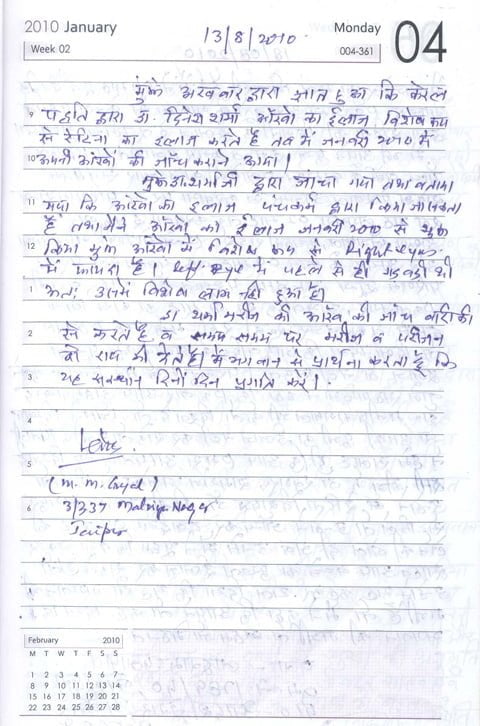 2010 January
Week 02
13/8/2010
Monday
004-361
04
मुझे अखबार द्वारा ज्ञात हुआ कि केरल
9 पद्धति द्वारा डा. दिनेश शर्मा आँखो का ईलाज विशेष रूप
से रेटिना का इलाज करते है तब मैं जनवरी 2010 में
10 अपनी आंखों की जांच कराने आया।
मुझे डा. शर्माजी द्वारा जांचा गया तथा बताया
11 गया कि आंखो का इलाज पंचकर्म द्वारा किया जा सकता
है तथा मैने आँखो का ईलाज जनवरी 2010 से शुरू
12 किया मुझे आंखो में विशेष रूप से Right eye
में फायदा है। Left eye में पहले से ही गड़बड़ी थी
1 अतः उसमें विशेष लाभ नही हुआ है।
डा शर्मा मरीज की आंख की जांच बारीकी
2 से करते है व समय समय पर मरीज व परिजन
को राय भी देते है। मैं भगवान से प्रार्थना करता हूँ कि
3 यह संस्थान दिनों दिन प्रगति करें।
4
5
(M. M. Goyal)
6 3/337 Malviya Nagar
Jaipur
February 2010
M T W T F S S
1 2 3 4 5 6 7
8 9 10 11 12 13 14
15 16 17 18 19 20 21
22 23 24 25 26 27 28